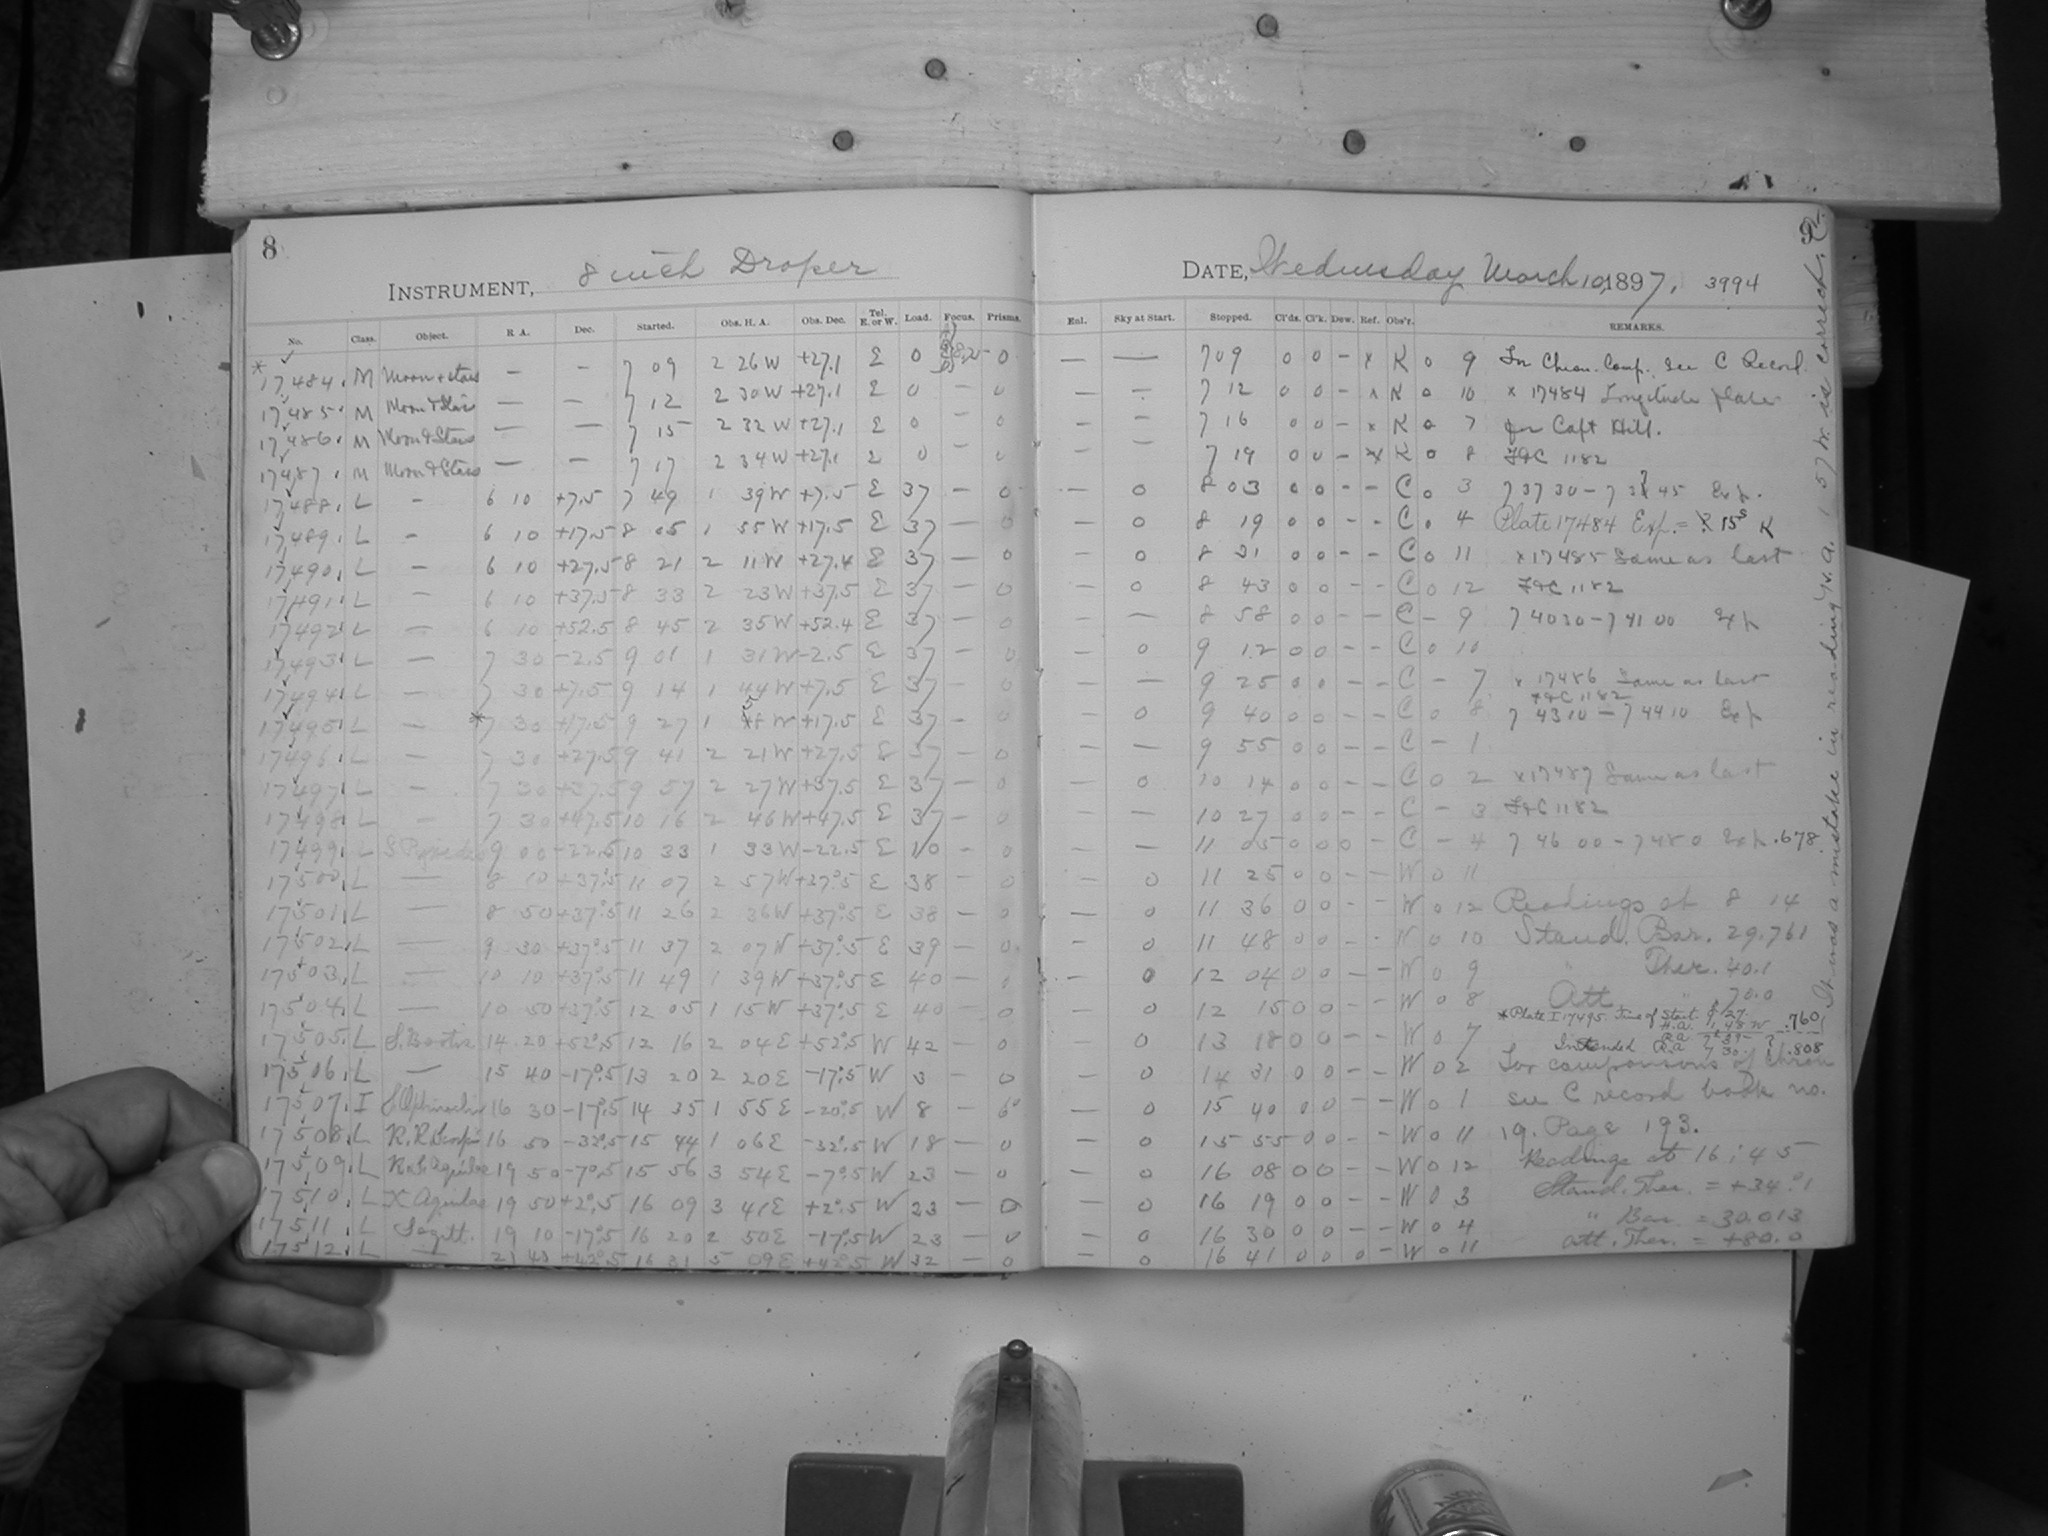 8
INSTRUMENT, 8 inch Draper
DATE, Wednesday March 10, 1897, 3994
No. Class. Object. R A. Dec. Started. Obs. H. A. Obs. Dec. Tel. E. or W. Load. Focus. Prisms. Enl. Sky at Start. Stopped. Cl'ds. Cl'k. Dew. Ref. Obs'r. REMARKS.
* 17484. M Moon + stars — - 7 09 2 26 W +27.1 E 0 0 — — 7 09 0 0 - x K 0 9 In Chron. Comp. see C Record.
17485. M Moon & Stars — — 7 12 2 30 W +27.1 E 0 - 0 - - 7 12 0 0 - x K 0 10 x 17484 Longitude plate
17486. M Moon & Stars — — 7 15 2 32 W +27.1 E 0 - 0 - — 7 16 0 0 - x K 0 7 for Capt Hill.
17487. M Moon & Stars — — 7 17 2 34 W +27.1 E 0 - 0 - — 7 19 0 0 - x K 0 8 1182
17488. L - 6 10 +7.5 7 49 1 39 W +7.5 E 37 — 0 — 0 8 03 0 0 - - C 0 3 7 37 30 - 7 45 Exp.
17489. L - 6 10 +17.5 8 05 1 55 W +17.5 E 37 — 0 — 0 8 19 0 0 - - C 0 4 Plate 17484 Exp. = 15s K
17490. L - 6 10 +27.5 8 21 2 11 W +27.4 E 37 — 0 — 0 8 31 0 0 - - C 0 11 x 17485 Same as last
17491. L - 6 10 +37.5 8 33 2 23 W +37.5 E 37 — 0 — 0 8 43 0 0 - - C 0 12 1182
17492. L — 6 10 +52.5 8 45 2 35 W +52.4 E 37 - 0 - — 8 58 0 0 - - C - 9 7 40 30 - 7 41 00 Exp
17493. L — 7 30 -2.5 9 01 1 31 W -2.5 E 37 - 0 — 0 9 12 0 0 - - C 0 10
17494. L — 7 30 +7.5 9 14 1 44 W +7.5 E 37 - 0 - — 9 25 0 0 - - C - 7 x 17486 Same as last
1182
17495. L — * 7 30 +17.5 9 27 1 W +17.5 E 37 - 0 - 0 9 40 0 0 - - C 0 8 7 43 10 - 7 44 10 Exp
17496. L — 7 30 +27.5 9 41 2 21 W +27.5 E 37 - 0 - — 9 55 0 0 - - C - 1
17497. L - 7 30 +37.5 9 57 2 27 W +37.5 E 37 - 0 — 0 10 14 0 0 - - C 0 2 x 17487 Same as last
17498. L - 7 30 +47.5 10 16 2 46 W +47.5 E 37 — 0 — — 10 27 0 0 - - C - 3 1182
17499. L 9 00 -22.5 10 33 1 33 W -22.5 E 10 - 0 — — 11 05 0 0 0 - C - 4 7 46 00 - 7 48 0 Exp .678
17500. L — 8 10 +37.5 11 07 2 57 W +37.5 E 38 - 0 — 0 11 25 0 0 - - W 0 11
17501. L — 8 50 +37.5 11 26 2 36 W +37.5 E 38 - 0 — 0 11 36 0 0 - - W 0 12 Readings at 8 14
17502. L — 9 30 +37.5 11 37 2 07 W +37.5 E 39 - 0 — 0 11 48 0 0 - - W 0 10 Stand. Bar. 29.761
17503. L — 10 10 +37.5 11 49 1 39 W +37.5 E 40 - 0 — 0 12 04 0 0 - - W 0 9 " Ther. 40.1
17504. L — 10 50 +37.5 12 05 1 15 W +37.5 E 40 - 0 — 0 12 15 0 0 - - W 0 8 Att " 70.0
* Plate I 17495. Time of Start. 9 27.
H.A. 1 48 W .760
17505. L S. Bootis 14 20 +52.5 12 16 2 04 E +52.5 W 42 - 0 — 0 13 18 0 0 - - W 0 7
Intended R.A 7 30. .808
17506. L — 15 40 -17.5 13 20 2 20 E -17.5 W 3 - 0 — 0 14 31 0 0 - - W 0 2 For comparisons of Chron
17507. I S Ophiuchi 16 30 -17.5 14 35 1 55 E -20.5 W 8 - 6 — 0 15 40 0 0 - - W 0 1 see C record book no.
17508. L R. R Scorpii 16 50 -32.5 15 44 1 06 E -32.5 W 18 - 0 — 0 15 55 0 0 - - W 0 11 19. Page 193.
17509. L R & S Aquilae 19 50 -7.5 15 56 3 54 E -7.5 W 23 - 0 — 0 16 08 0 0 - - W 0 12 Readings at 16:45
17510. L X Aquilae 19 50 +2.5 16 09 3 41 E +2.5 W 23 — 0 — 0 16 19 0 0 - - W 0 3 Stand. Ther. = +34.1
17511. L Sagitt. 19 10 -17.5 16 20 2 50 E -17.5 W 23 — 0 — 0 16 30 0 0 - - W 0 4 " Bar = 30.013
17512. L — 21 40 +42.5 16 31 5 09 E +42.5 W 32 — 0 — 0 16 41 0 0 0 - W 0 11 att. Ther. = +80.0
There was a mistake in reading H. A. 1 57 W. is correct.